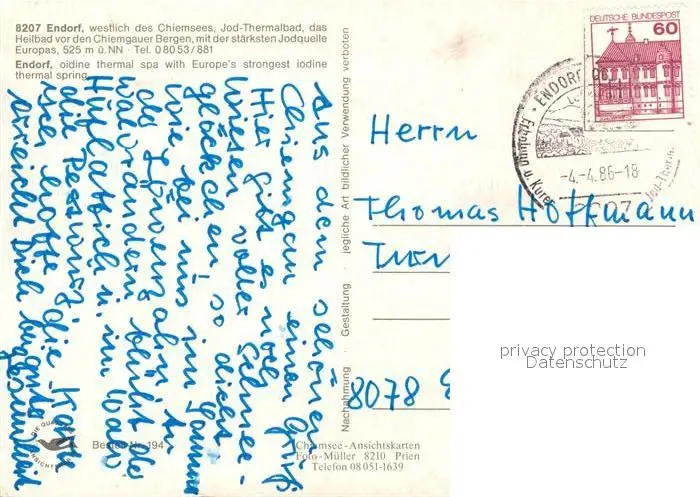 8207 Endorf, westlich des Chiemsees, Jod-Thermalbad, das
Heilbad vor den Chiemgauer Bergen, mit der stärksten Jodquelle
Europas, 525 m ü. NN · Tel. 0 80 53 / 881
Endorf, oidine thermal spa with Europe's strongest iodine
thermal spring.
Aus dem schönen
Chiemgau einen Gruß
Hier gibt es noch
Wiesen voller Schnee-
glöckchen so dicht
wie bei uns im Sommer
der Löwenzahn. An
Waldrändern blüht der
Huflattich u. im Wald
die
ich hoffe die Karte
erreicht Dich
Nachahmung Gestaltung · jegliche Art bildlicher Verwendung verboten
DEUTSCHE BUNDESPOST
60
ENDORF
Erholung u. Kuren
-4.-4.86-18
8207
Jod-Therm
Herrn
Thomas Hoffmann
8078
privacy protection
Datenschutz
Bestell-Nr. 194
Chiemsee-Ansichtskarten
Foto-Müller 8210 Prien
Telefon 08 051-1639